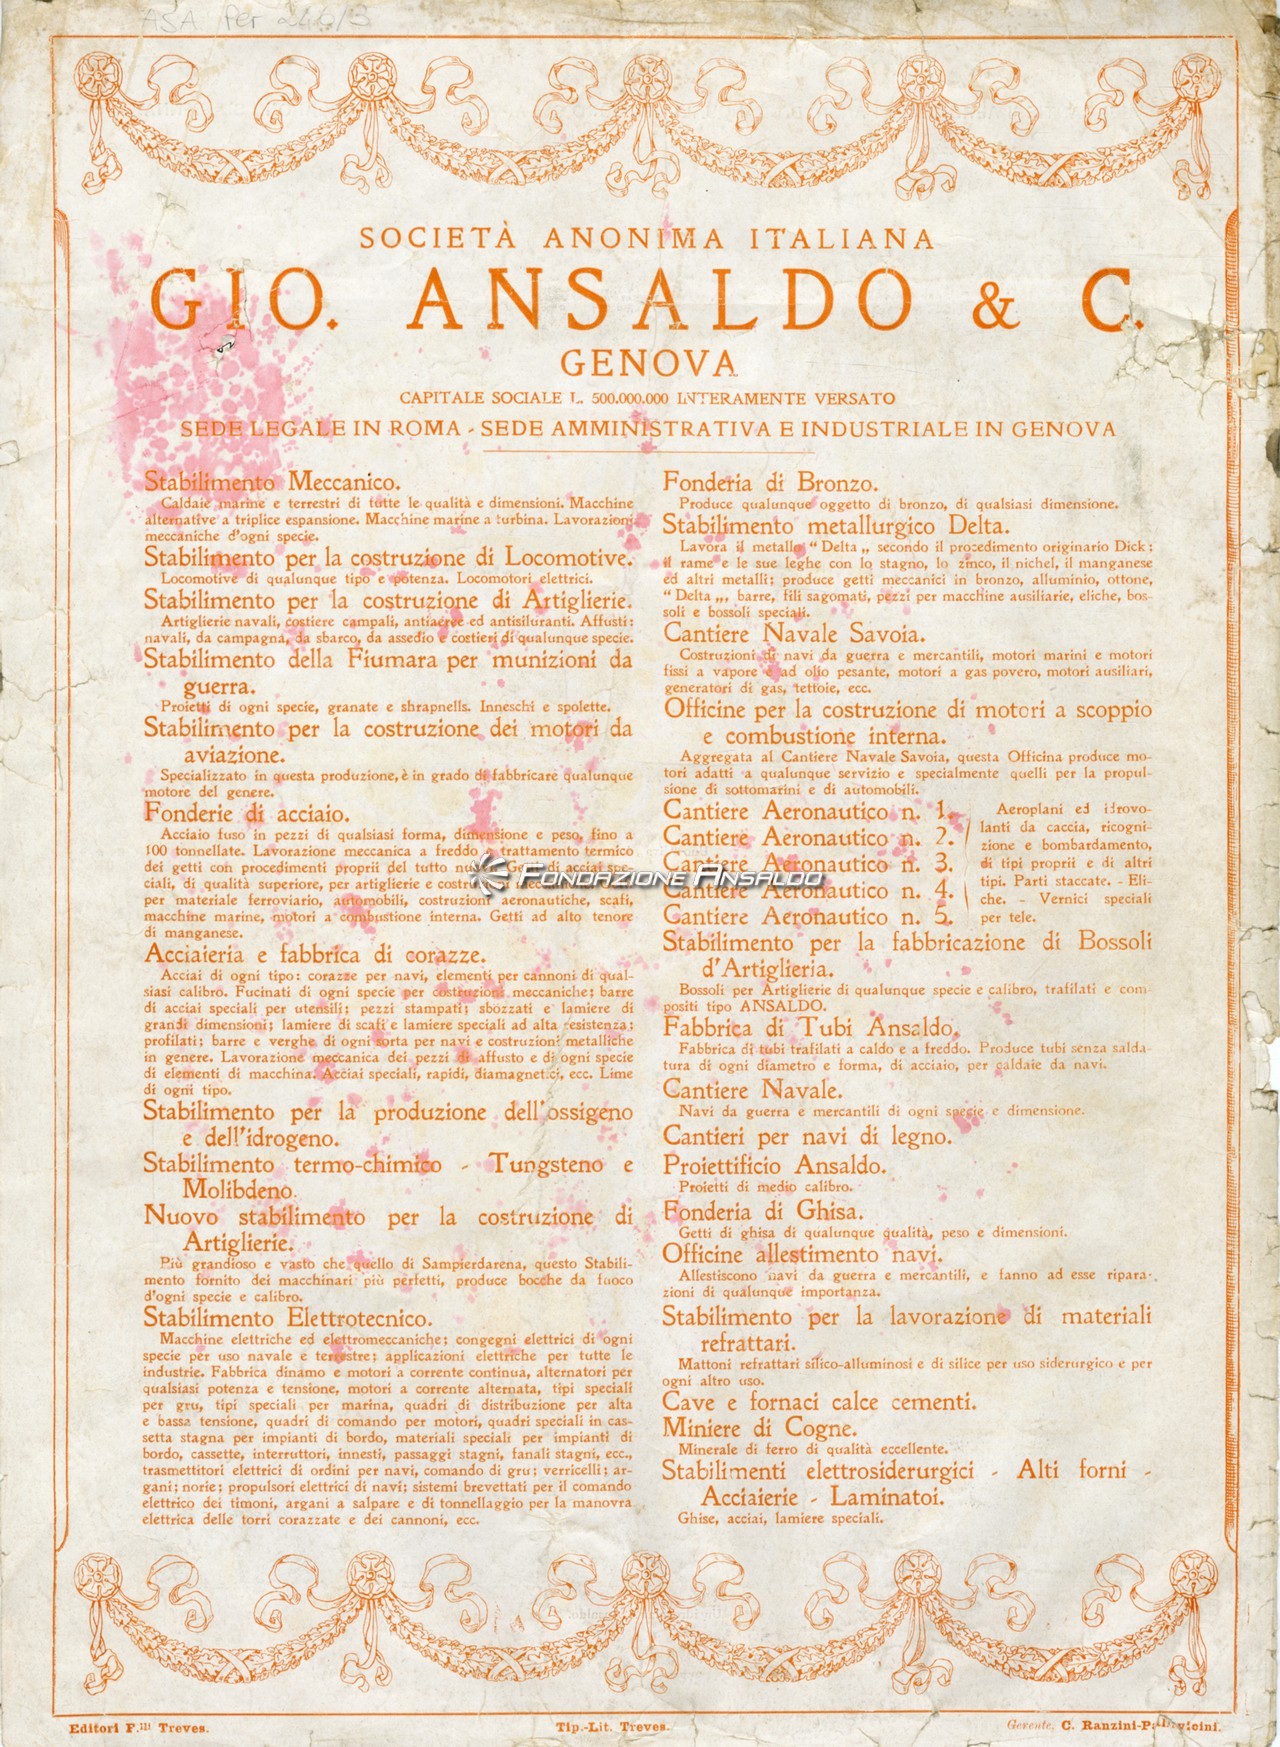 ASA Per 246/3
SOCIETÀ ANONIMA ITALIANA
GIO. ANSALDO & C.
GENOVA
CAPITALE SOCIALE L. 500.000.000 INTERAMENTE VERSATO
SEDE LEGALE IN ROMA - SEDE AMMINISTRATIVA E INDUSTRIALE IN GENOVA
Stabilimento Meccanico.
Caldaie marine e terrestri di tutte le qualità e dimensioni. Macchine
alternative a triplice espansione. Macchine marine a turbina. Lavorazioni
meccaniche d'ogni specie.
Stabilimento per la costruzione di Locomotive.
Locomotive di qualunque tipo e potenza. Locomotori elettrici.
Stabilimento per la costruzione di Artiglierie.
Artiglierie navali, costiere campali, antiaeree ed antisiluranti. Affusti:
navali, da campagna, da sbarco, da assedio e costieri di qualunque specie.
Stabilimento della Fiumara per munizioni da
guerra.
Proietti di ogni specie, granate e shrapnells. Inneschi e spolette.
Stabilimento per la costruzione dei motori da
aviazione.
Specializzato in questa produzione, è in grado di fabbricare qualunque
motore del genere.
Fonderie di acciaio.
Acciaio fuso in pezzi di qualsiasi forma, dimensione e peso, fino a
100 tonnellate. Lavorazione meccanica a freddo e trattamento termico
dei getti con procedimenti proprii del tutto nuovi. Getti di acciai spe-
ciali, di qualità superiore, per artiglierie e costruzioni meccaniche,
per materiale ferroviario, automobili, costruzioni aeronautiche, scafi,
macchine marine, motori a combustione interna. Getti ad alto tenore
di manganese.
Acciaieria e fabbrica di corazze.
Acciai di ogni tipo: corazze per navi, elementi per cannoni di qual-
siasi calibro. Fucinati di ogni specie per costruzioni meccaniche; barre
di acciai speciali per utensili; pezzi stampati; sbozzati e lamiere di
grandi dimensioni; lamiere di scafi e lamiere speciali ad alta resistenza;
profilati; barre e verghe di ogni sorta per navi e costruzioni metalliche
in genere. Lavorazione meccanica dei pezzi di affusto e di ogni specie
di elementi di macchina. Acciai speciali, rapidi, diamagnetici, ecc. Lime
di ogni tipo.
Stabilimento per la produzione dell'ossigeno
e dell'idrogeno.
Stabilimento termo-chimico - Tungsteno e
Molibdeno.
Nuovo stabilimento per la costruzione di
Artiglierie.
Più grandioso e vasto che quello di Sampierdarena, questo Stabili-
mento fornito dei macchinari più perfetti, produce bocche da fuoco
d'ogni specie e calibro.
Stabilimento Elettrotecnico.
Macchine elettriche ed elettromeccaniche; congegni elettrici di ogni
specie per uso navale e terrestre; applicazioni elettriche per tutte le
industrie. Fabbrica dinamo e motori a corrente continua, alternatori per
qualsiasi potenza e tensione, motori a corrente alternata, tipi speciali
per gru, tipi speciali per marina, quadri di distribuzione per alta
e bassa tensione, quadri di comando per motori, quadri speciali in cas-
setta stagna per impianti di bordo, materiali speciali per impianti di
bordo, cassette, interruttori, innesti, passaggi stagni, fanali stagni, ecc.,
trasmettitori elettrici di ordini per navi, comando di gru; verricelli; ar-
gani; norie; propulsori elettrici di navi; sistemi brevettati per il comando
elettrico dei timoni, argani a salpare e di tonnellaggio per la manovra
elettrica delle torri corazzate e dei cannoni, ecc.
Fonderia di Bronzo.
Produce qualunque oggetto di bronzo, di qualsiasi dimensione.
Stabilimento metallurgico Delta.
Lavora il metallo “ Delta „ secondo il procedimento originario Dick;
il rame e le sue leghe con lo stagno, lo zinco, il nichel, il manganese
ed altri metalli; produce getti meccanici in bronzo, alluminio, ottone,
“ Delta „, barre, fili sagomati, pezzi per macchine ausiliarie, eliche, bos-
soli e bossoli speciali.
Cantiere Navale Savoia.
Costruzioni di navi da guerra e mercantili, motori marini e motori
fissi a vapore e ad olio pesante, motori a gas povero, motori ausiliari,
generatori di gas, tettoie, ecc.
Officine per la costruzione di motori a scoppio
e combustione interna.
Aggregata al Cantiere Navale Savoia, questa Officina produce mo-
tori adatti a qualunque servizio e specialmente quelli per la propul-
sione di sottomarini e di automobili.
Cantiere Aeronautico n. 1.
Cantiere Aeronautico n. 2.
Cantiere Aeronautico n. 3.
Cantiere Aeronautico n. 4.
Cantiere Aeronautico n. 5.
Aeroplani ed idrovo-
lanti da caccia, ricogni-
zione e bombardamento,
di tipi proprii e di altri
tipi. Parti staccate. - Eli-
che. - Vernici speciali
per tele.
FONDAZIONE ANSALDO
Stabilimento per la fabbricazione di Bossoli
d'Artiglieria.
Bossoli per Artiglierie di qualunque specie e calibro, trafilati e com-
positi tipo ANSALDO.
Fabbrica di Tubi Ansaldo.
Fabbrica di tubi trafilati a caldo e a freddo. Produce tubi senza salda-
tura di ogni diametro e forma, di acciaio, per caldaie da navi.
Cantiere Navale.
Navi da guerra e mercantili di ogni specie e dimensione.
Cantieri per navi di legno.
Proiettificio Ansaldo.
Proietti di medio calibro.
Fonderia di Ghisa.
Getti di ghisa di qualunque qualità, peso e dimensioni.
Officine allestimento navi.
Allestiscono navi da guerra e mercantili, e fanno ad esse ripara-
zioni di qualunque importanza.
Stabilimento per la lavorazione di materiali
refrattari.
Mattoni refrattari silico-alluminosi e di silice per uso siderurgico e per
ogni altro uso.
Cave e fornaci calce cementi.
Miniere di Cogne.
Minerale di ferro di qualità eccellente.
Stabilimenti elettrosiderurgici - Alti forni -
Acciaierie - Laminatoi.
Ghise, acciai, lamiere speciali.
Editori F.lli Treves.
Tip.-Lit. Treves.
Gerente, C. Ranzini-Pallavicini.